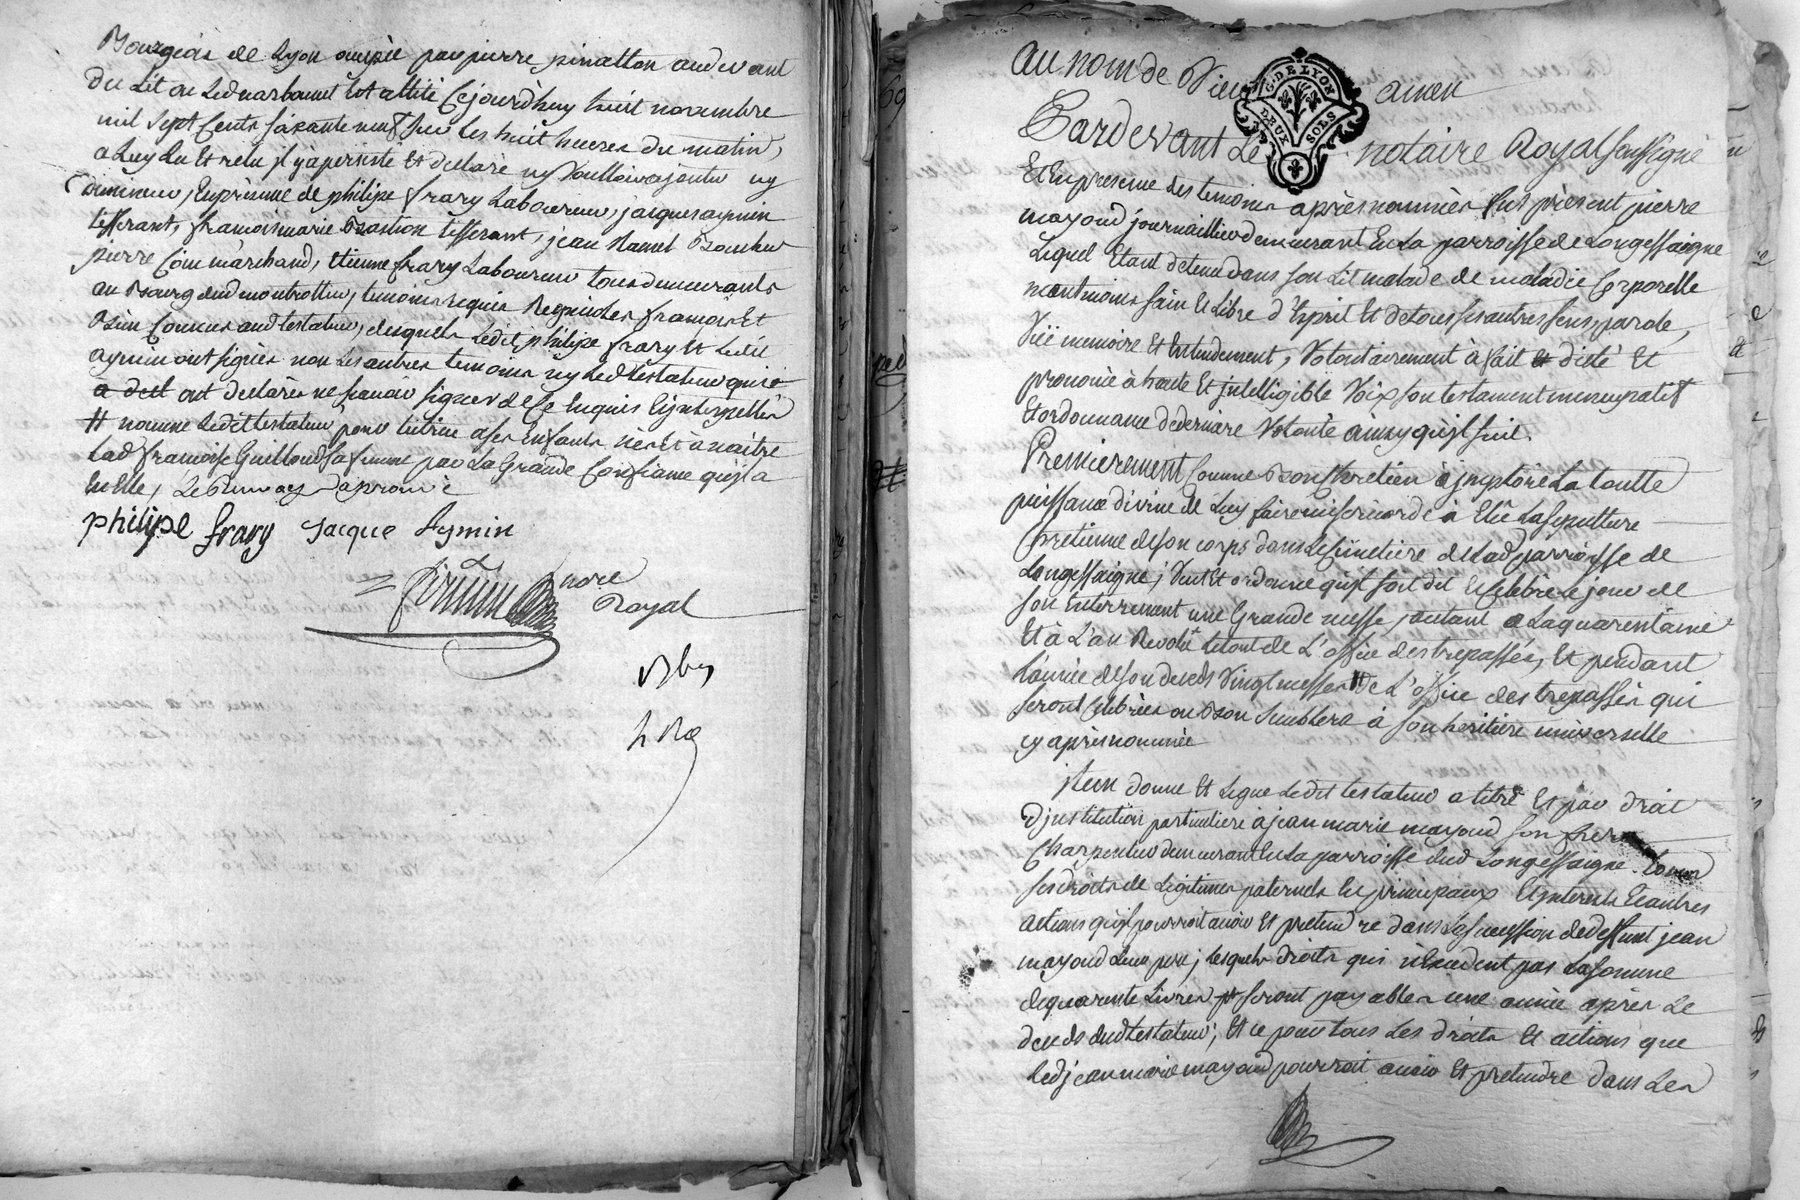 Bourgeois de Lyon occupée par pierre pinatton au devant
du Lit ou Led narbonnet est allité Cejourd'huy huit novembre
mil sept Cents soixante neuf sur Les huit heures du matin,
a Luy Lu Et relu jl y a persisté et declaré ny Vouloir ajouter ny
diminuer, En presence de philipe frary Laboureur, jacques aymin
tisserant, francoismarie Bastion tisserant, jean Ramel Boucher
pierre Côm marchand, Etienne frary Laboureur tous demeurants
au Bourg dud montrottier, temoins requis
Bien Connus aud testateur, desquels Ledit philipe frary Et Ledit
aymin ont signés non Les autres temoins ny Led testateur qui
a dell ont declarés ne scavoir signer de Ce Enquis Et jnterpellés
# nomme Ledit testateur pour tutrice a ses Enfants nés Et à naitre
Lad françoise Guilloud sa femme par La Grande Confiance qu'jl a
En Elle, Le Renvoy approuvé
philipe frary jacque Aymin
nore
Royal
au nom de Dieu amen
G. DE LYON
DEUX SOLS
Pardevant Le notaire Royal soussigné
Et En presence des temoins après nommés fut présent pierre
mayoud journaillier demeurant En La parroisse de Longessaigne
Lequel Etant detenu dans son Lit malade de maladie Corporelle
neantmoins sain Et Libre d'Esprit Et de tous ses autres sens, parole,
Vüë memoire Et Entendement, Volontairement à fait & dicté Et
prononcé à haute Et jntelligible Voix son testament nuncupatif
Et ordonnance de derniere Volonté ainsy qu'jl suit.
Premierement Comme Bon Chretien à jmploré La toutte
puissance divine de Luy faire misericorde à Elû La sepulture
Chretienne de son corps dans Le Cimetiere de Lad parroisse de
Longessaigne; Veut Et ordonne qu'jl soit dit Et Celebré Le jour de
son Enterrement une Grande messe, autant a La quarentaine
Et à L'an Revolû Letout de L'office des trepassés, Et pendant
L'année de son decéds Vingt messes # de L'office des trepassés qui
seront Celebrées ou Bon Semblera à son heritiere universelle
cy après nommée
jtem donne Et Legue Ledit testateur a titre Et par droit
D'jnstitution particuliere à jean marie mayoud son frere
Charpentier demeurant En La parroisse dud Longessaigne tous
ses droits de Legitimes paternels En principaux Et jnterets Et autres
actions qu'jl pourroit avoir Et pretendre dans La succession de deffunt jean
mayoud Leur pere; Lesquels droits qui n'Excedent pas La somme
de quarente Livres seront payables une année après Le
decéds dud testateur; Et ce pour tous Les droits Et actions que
Led jean marie mayoud pourroit avoir Et pretendre dans Les